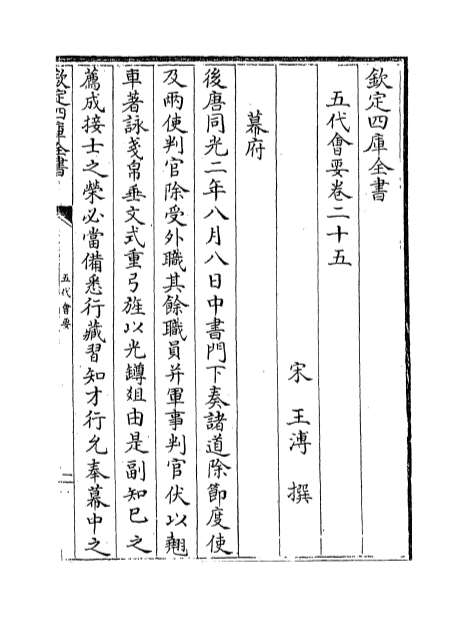 欽定四庫全書
五代會要卷二十五
宋 王溥 撰
幕府
後唐同光二年八月八日中書門下奏諸道除節度使
及兩使判官除受外職其餘職員并軍事判官伏以翹
車著詠戔帛垂文式重弓旌以光鐏爼由是副知已之
薦成接士之榮必當備悉行藏習知才行允奉幕中之
欽定四庫全書
五代會要